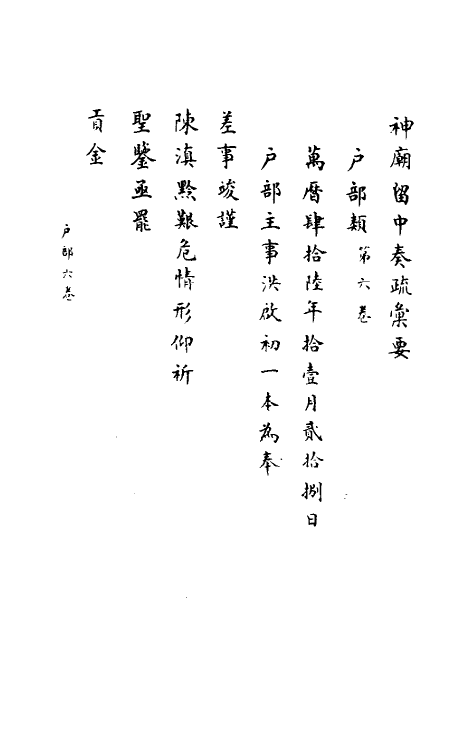 神廟留中奏疏彙要
户部類第六卷
萬曆肆拾陸年拾壹月貳拾捌日
户部主事洪啟初一本為奉
差事竣謹
陳滇黔艱危情形仰祈
聖鑒亟罷
貢金
户部六卷